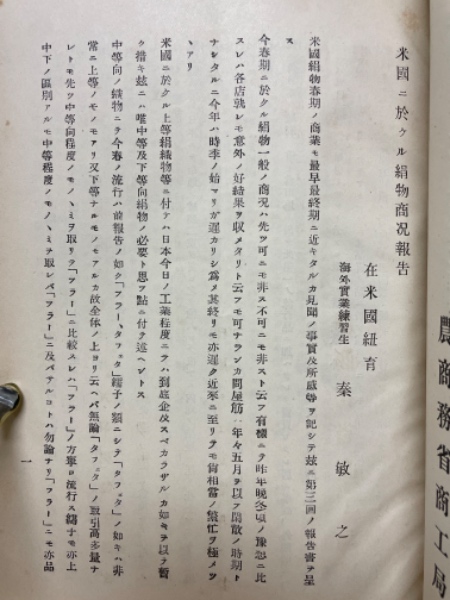 農商務省商工局
米國ニ於クル絹物商况報告
在米國紐育
海外實業練習生
秦敏之
米國絹物春期ノ商業モ最早最終期ニ近キタルカ見聞ノ事實及所感等ヲ記シテ玆ニ第三回ノ報告書ヲ呈
ス
今春期ニ於クル絹物一般ノ商况ハ先ツ可ニモ非ス不可ニモ非スト云フ有樣ニテ昨年晚冬頃ノ豫想ニ比
スレハ各店孰レモ意外ノ好結果ヲ收メタリト云フモ可ナランカ問屋筋ハ年々五月ヲ以フ閑散ノ時期ト
ナシタルニ今年ハ時季ノ始マリガ遲カリシ爲メ其終リモ亦遲ク近來ニ至リテモ尙相當ノ繁忙ヲ極メツ
ヽアリ
米國ニ於クル上等絹織物等ニ付テハ日本今日ノ工業程度ニテハ到底企及スベカラザルカ如キヲ以テ暫
ク措キ玆ニハ唯中等及下等向絹物ノ必要ト思フ點ニ付テ述ヘントス
中等向ノ織物ニテ今春ノ流行ハ前報告ノ如ク「フラー、タフェタ」繻子ノ類ニシテ「タフェタ」ノ如キハ非
常ニ上等ノモノモアリ又下等ナルモノモアルカ故全体ノ上ヨリ云ヘバ無論「タフェタ」ノ取引高多量ナ
レトモ先ツ中等向程度ノモノヽミヲ取リテ「フラー」ニ比較スレハ「フラー」ノ方寧ロ流行ス繻子モ亦上
中下ノ區別アルモ中等程度ノモノヽミヲ取レバ「フラー」ニ及バサルコトハ勿論ナリ「フラー」ニモ亦品
一